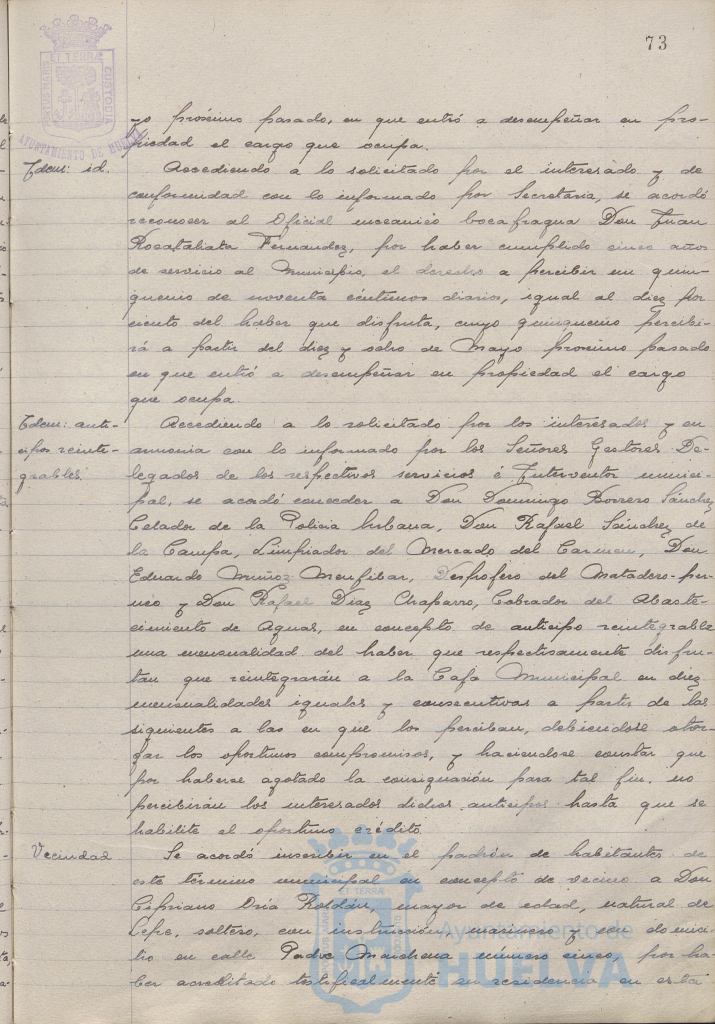 73
PORTUS MARIS ET TERRÆ CUSTODIA
AYUNTAMIENTO DE HUELVA
yo próximo pasado, en que entró a desempeñar en pro-
piedad el cargo que ocupa.
Idem: id.
Accediendo a lo solicitado por el interesado y de
conformidad con lo informado por Secretaría, se acordó
reconocer al Oficial mecanico bocafragua Don Juan
Rocatallata Fernandez, por haber cumplido cinco años
de servicio al Municipio, el derecho a percibir un quin-
quenio de noventa céntimos diarios, igual al diez por
ciento del haber que disfruta, cuyo quinquenio percibi-
rá a partir del diez y ocho de Mayo proximo pasado
en que entró a desempeñar en propiedad el cargo
que ocupa.
Idem: anti-
cipos reinte-
grables.
Accediendo a lo solicitado por los interesados y en
armonia con lo informado por los Señores Gestores De-
legados de los respectivos servicios é Interventor munici-
pal, se acordó conceder a Don Domingo Borrero Sánchez
Celador de la Policia Urbana, Don Rafael Sánchez de
la Campa, Limpiador del Mercado del Carmen, Don
Eduardo Muñoz Menfibar, del Matadero-
y Don Rafael Diaz Chaparro, Cobrador del Abaste-
cimiento de Aguas, en concepto de anticipo reintegrable
una mensualidad del haber que respectivamente disfru-
tan que reintegrarán a la Caja Municipal en diez
mensualidades iguales y consecutivas a partir de las
siguientes a las en que los perciban, debiendose otor-
gar los oportunos compromisos, y haciendose constar que
por haberse agotado la consignación para tal fin, no
percibirán los interesados dichos anticipos hasta que se
habilite el oportuno crédito.
Vecindad
Se acordó inscribir en el padrón de habitantes de
este término municipal en concepto de vecino a Don
Cipriano Oria Roldán, mayor de edad, natural de
Lepe, soltero, con instrucción, marinero y con domici-
lio en calle Padre Marchena número cinco, por ha-
ber acreditado testificalmente su residencia en esta
Ayuntamiento de
HUELVA